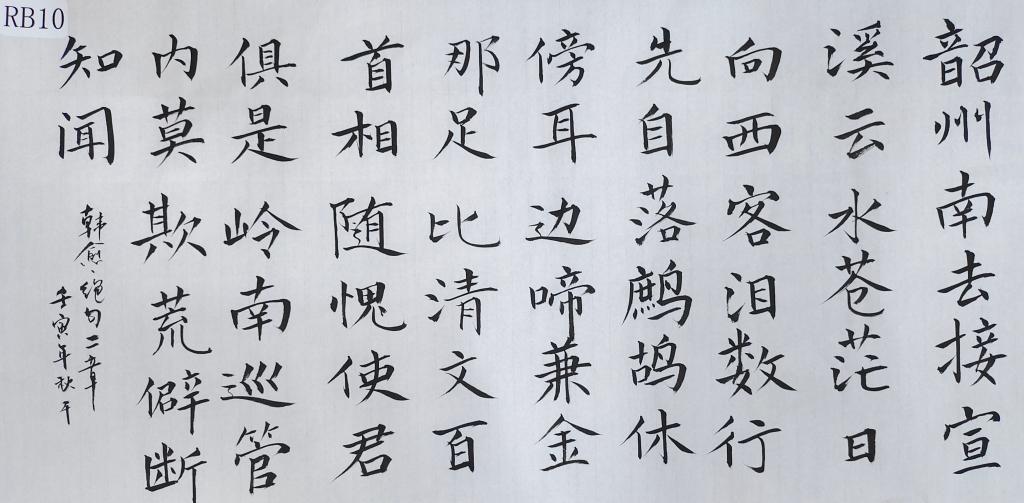 RB10
韶州南去接宣
溪云水苍茫日
向西客泪数行
先自落鹧鸪休
傍耳边啼兼金
那足比清文百
首相随愧使君
俱是岭南巡管
内莫欺荒僻断
知闻
韩愈绝句二
壬寅年秋